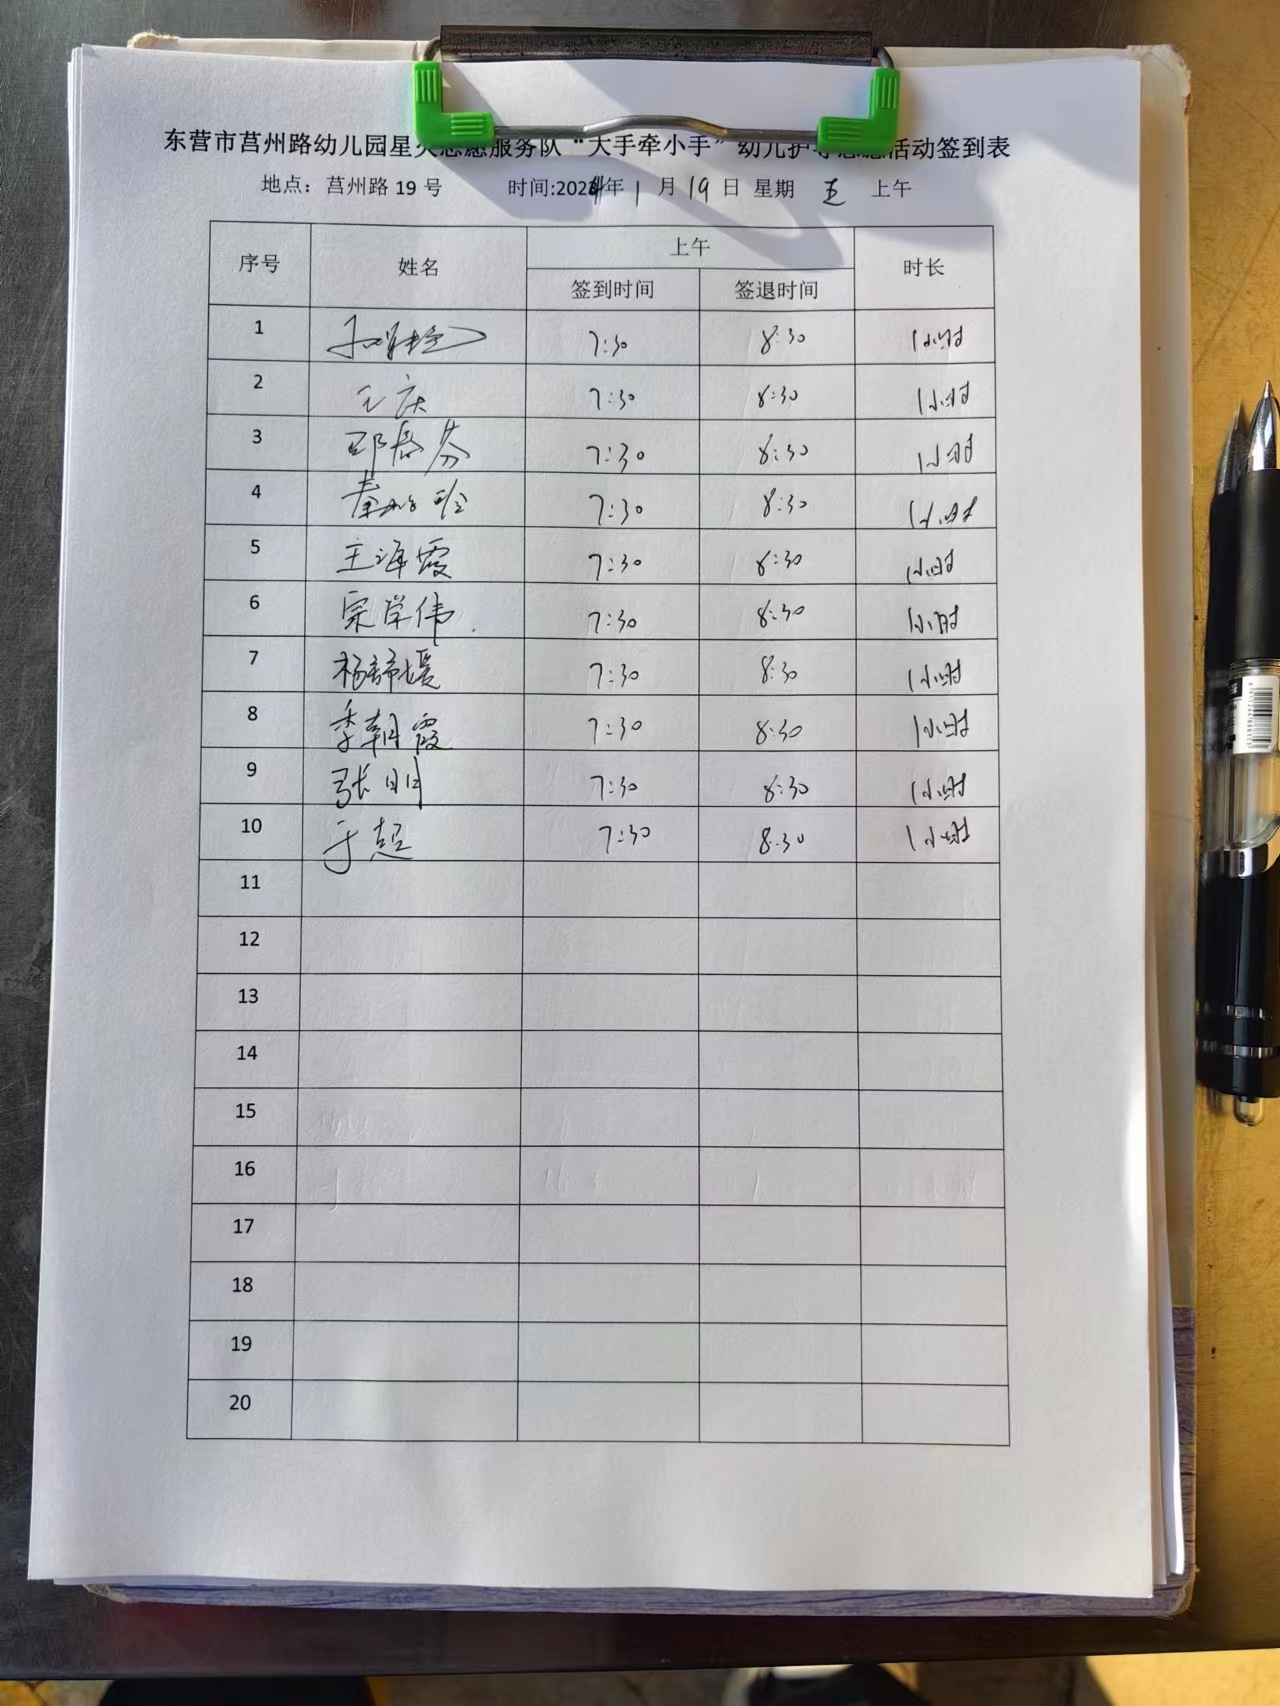 东营市莒州路幼儿园星火志愿服务队“大手牵小手”幼儿护导志愿活动签到表
地点：莒州路 19 号 时间:2024年 1 月 19 日 星期 五 上午
序号 姓名 上午 时长
签到时间 签退时间
1 7:30 8:30 1小时
2 王庆 7:30 8:30 1小时
3 邵春芬 7:30 8:30 1小时
4 秦 7:30 8:30 1小时
5 王海霞 7:30 8:30 1小时
6 宗学伟 7:30 8:30 1小时
7 杨 媛 7:30 8:30 1小时
8 李朝霞 7:30 8:30 1小时
9 张明 7:30 8:30 1小时
10 于超 7:30 8:30 1小时
11
12
13
14
15
16
17
18
19
20